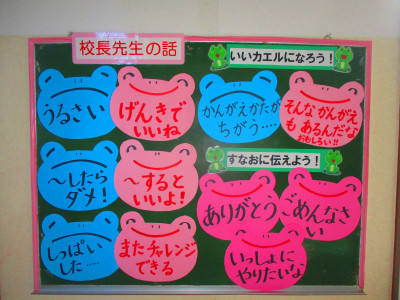 校長先生の話
いいカエルになろう!
うるさい
げんきで
いいね
かんがえかたが
ちがう‥‥
そんな かんがえ
も あるんだな
おもしろい!!
〜したら
ダメ!
〜すると
いいよ!
すなおに伝えよう!
ありがとう
ごめんなさ
い
しっぱい
した‥‥
またチャレンジ
できる
いっしょに
やりたいな